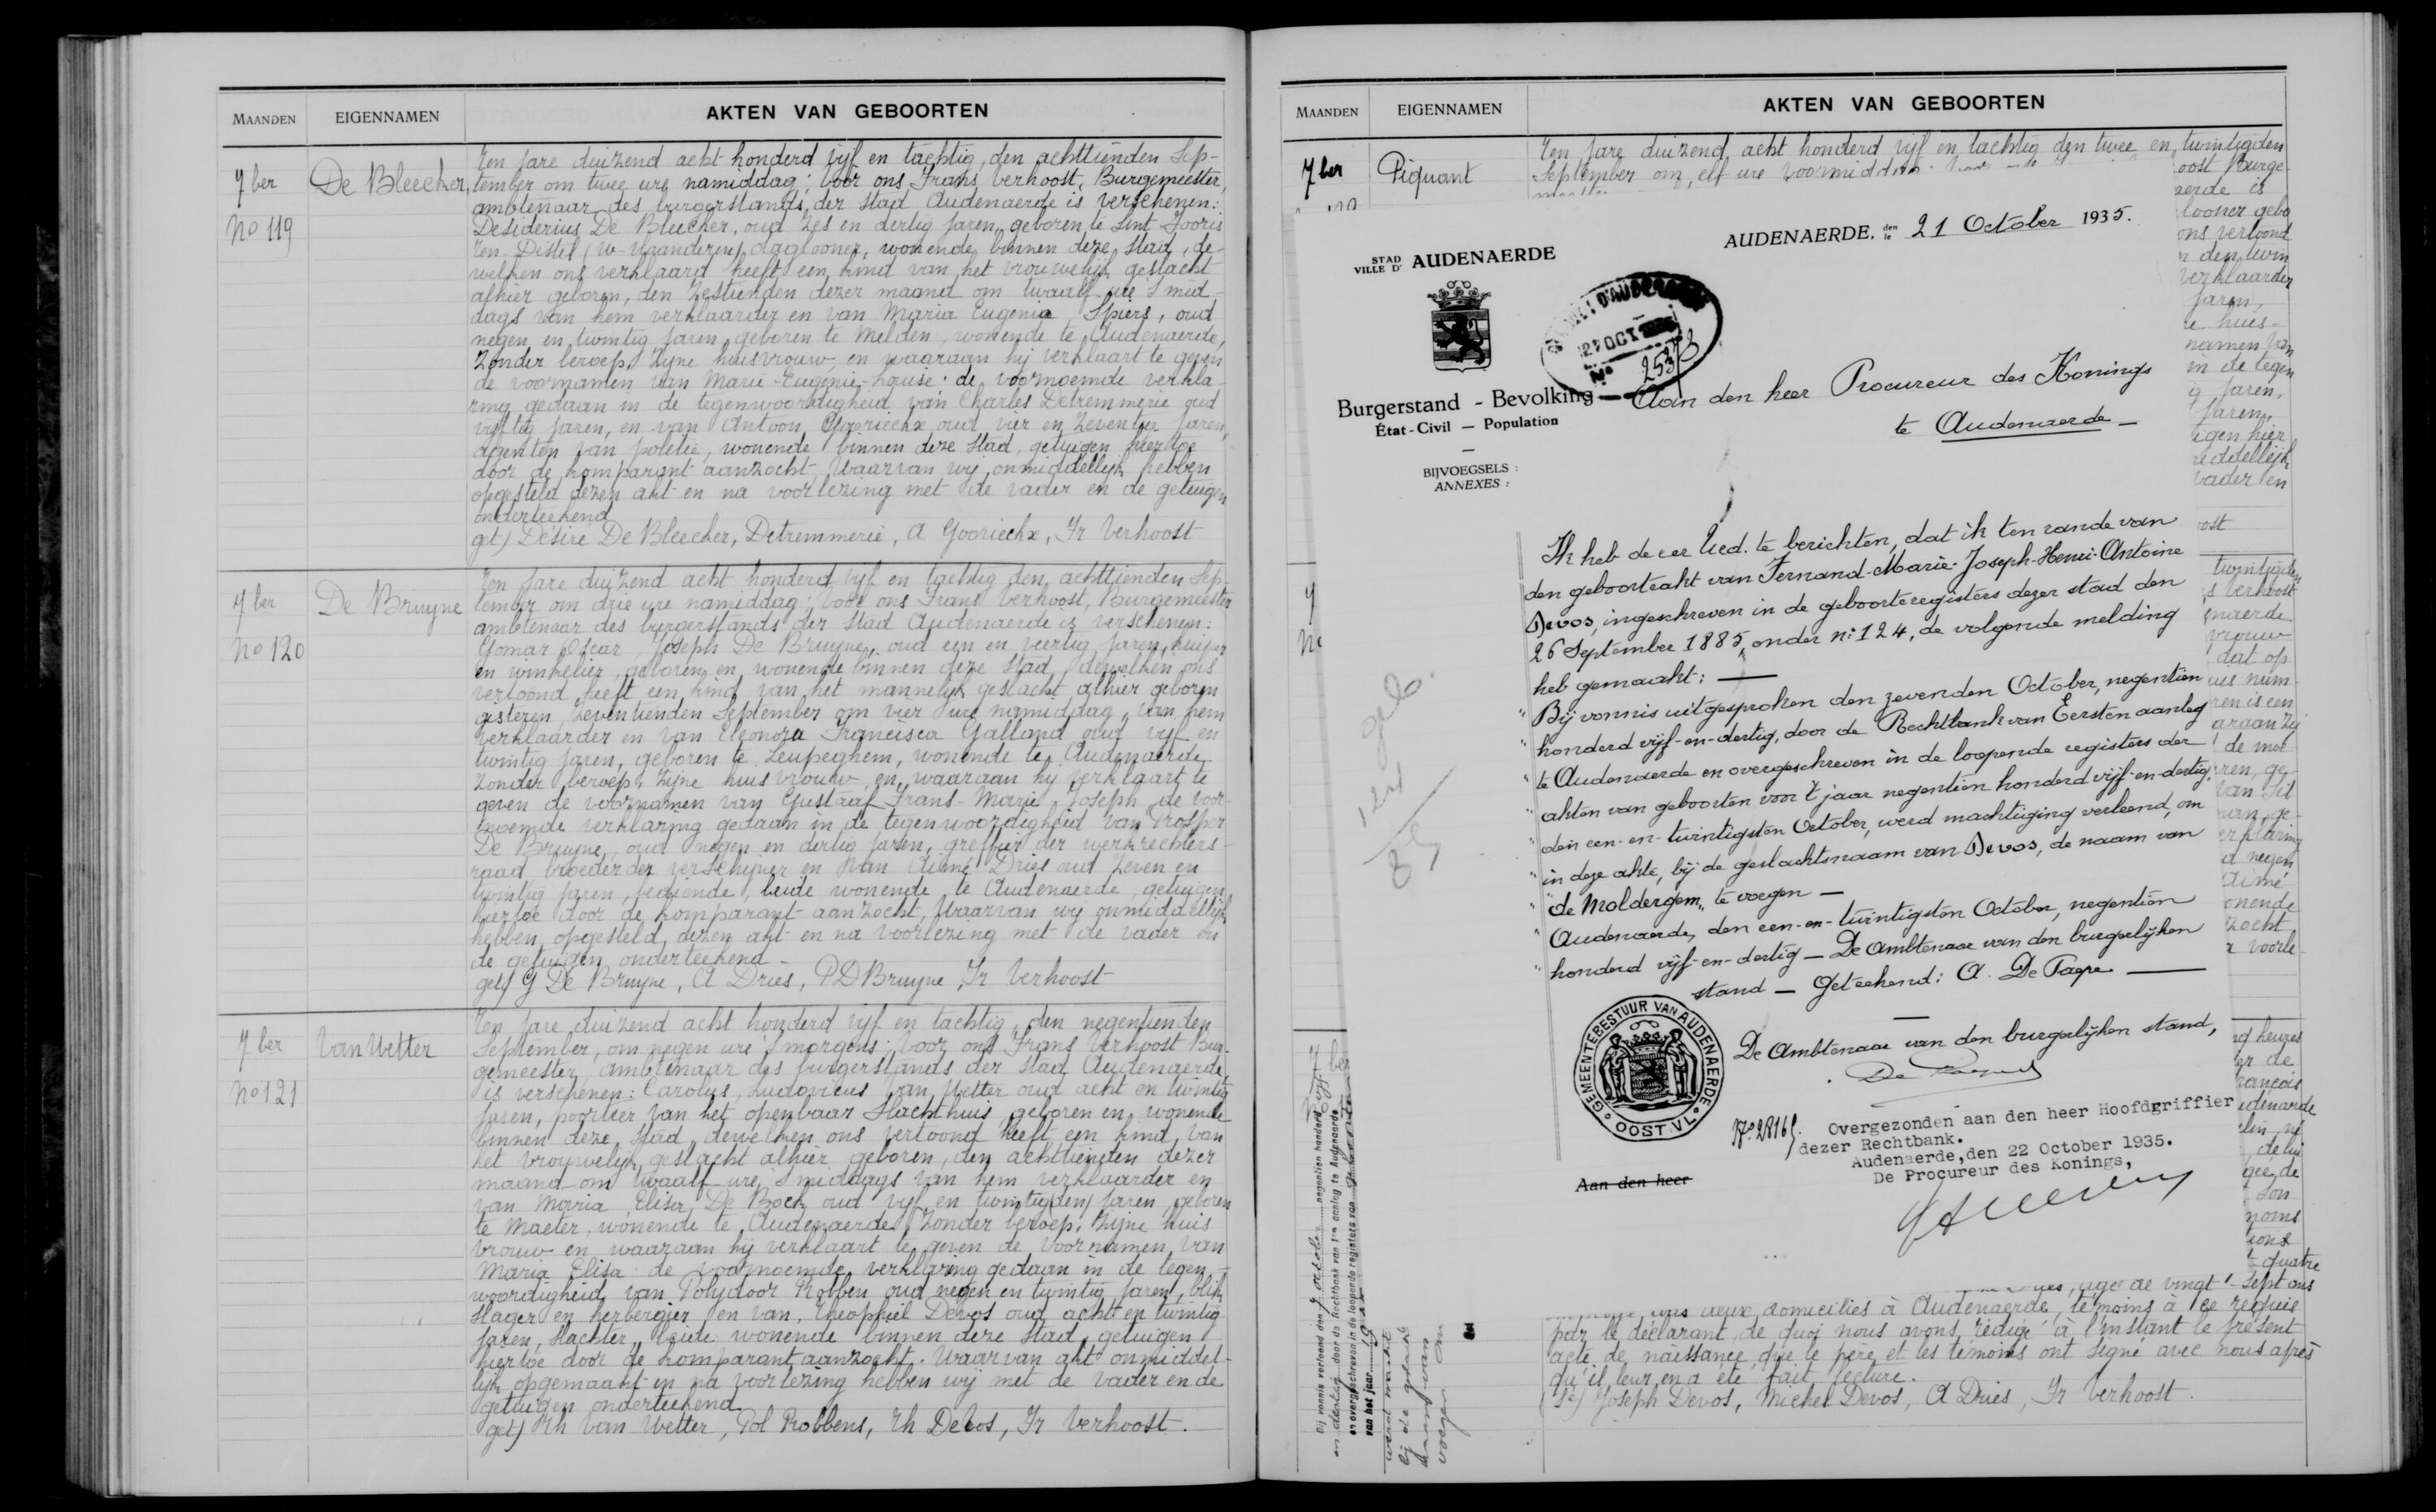 MAANDEN EIGENNAMEN AKTEN VAN GEBOORTEN
7ber
De Bleecker,
No 119
Ten jare duizend acht honderd vijf en tachtig, den achttienden Sep-
tember om twee ure namiddag: voor ons Frans Verhoost, Burgemeester,
ambtenaar des burgerstands der stad Audenaerde is verschenen:
Desiderius De Bleecker, oud zes en dertig jaren, geboren te Sint Jooris
ten Distel (W-Vlaanderen) daglooner, wonende binnen deze stad, de-
welken ons verklaard heeft een kind van het vrouwelijk geslacht
alhier geboren, den zestienden dezer maand om twaalf ure 's mid-
dags van hem verklaarder en van Maria Eugenia Spiers, oud
negen en twintig jaren, geboren te Melden, wonende te Audenaerde,
zonder beroep, zijne huisvrouw, en waaraan hij verklaart te geven
de voornamen van Marie-Eugénie-Louise: de voornoemde verkla-
ring gedaan in de tegenwoordigheid van Charles Detremmerie oud
vijftig jaren, en van Antoon Gooriechx oud vier en zeventig jaren,
agenten van politie, wonende binnen deze stad, getuigen hiertoe
door de komparant aanzocht, waarvan wij onmiddellijk hebben
opgesteld dezen akt en na voorlezing met de vader en de getuigen
onderteekend
get) Désiré De Bleecker, Detremmerie, A Gooriechx, Fr Verhoost
7ber
De Bruyne
No 120
Ten jare duizend acht honderd vijf en tachtig den achttienden Sep-
tember om drie ure namiddag: voor ons Frans Verhoost, Burgemeester
ambtenaar des burgerstands der stad Audenaerde is verschenen:
Gomar Oscar Joseph De Bruyne, oud een en veertig jaren, kuiper
en winkelier, geboren en wonende binnen deze stad, dewelken ons
vertoond heeft een kind van het mannelijk geslacht alhier geboren
gisteren zeventienden September om vier ure namiddag, van hem
verklaarder en van Eleonora Francisca Galland oud vijf en
twintig jaren, geboren te Leupeghem, wonende te Audenaerde
zonder beroep, zijne huisvrouw, en waaraan hij verklaart te
geven de voornamen van Gustaaf-Frans-Marie Joseph de voor-
noemde verklaring gedaan in de tegenwoordigheid van Prosper
De Bruyne, oud negen en dertig jaren, greffier der werkrechters-
raad, broeder der verschijner en van Aimé Dries oud zeven en
twintig jaren, bediende, beide wonende te Audenaerde, getuigen
hiertoe door de komparant aanzocht, Waarvan wij onmiddellijk
hebben opgesteld dezen akt en na voorlezing met de vader en
de getuigen onderteekend -
get) G De Bruyne, A Dries, P D Bruyne, Fr Verhoost
7ber
Van Wetter
No 121
Ten jare duizend acht honderd vijf en tachtig, den negentienden
September, om negen ure 's morgens: voor ons Frans Verhoost Bur-
gemeester, ambtenaar des burgerstands der stad Audenaerde
is verschenen: Carolus Ludovicus Van Wetter oud acht en twintig
jaren, poortier van het openbaar Slachthuis geboren en wonende
binnen deze stad, dewelken ons vertoond heeft een kind van
het vrouwelijk geslacht alhier geboren, den achttienden dezer
maand om twaalf ure 's middags van hem verklaarder en
van Maria Elisa De Bock, oud vijf en twintig(den) jaren, geboren
te Maeter, wonende te Audenaerde, zonder beroep, zijne huis
vrouw en waaraan hij verklaart te geven de voornamen van
Maria Elisa de voornoemde verklaring gedaan in de tegen-
woordigheid van Polydoor Robben oud negen en twintig jaren, blik
slager en herbergier en van Theophiel Devos oud acht en twintig
jaren, slachter, beide wonende binnen deze stad, getuigen
hiertoe door de komparant aanzocht. Waarvan akt onmiddel-
lijk opgemaakt en na voorlezing hebben wij met de vader en de
getuigen onderteekend
get) Th Van Wetter, Pol Robbens, Th Devos, Fr Verhoost.
MAANDEN EIGENNAMEN AKTEN VAN GEBOORTEN
7ber
Piquant
Ten jare duizend acht honderd vijf en tachtig den twee en twintigden
September om elf ure voormiddag
STAD
VILLE D' AUDENAERDE
AUDENAERDE, den
le 21 October 1935.
2537
Burgerstand - Bevolking
État-Civil — Population
BIJVOEGSELS :
ANNEXES :
Aan den heer Procureur des Konings
te Audenaerde —
Ik heb de eer Ued. te berichten, dat ik ten rande van
den geboorteakt van Fernand-Marie-Joseph-Henri-Antoine
Devos, ingeschreven in de geboorteregisters dezer stad den
26 September 1885, onder n: 124, de volgende melding
heb gemaakt: —
" Bij vonnis uitgesproken den zevenden October, negentien
" honderd vijf-en-dertig, door de Rechtbank van Eersten aanleg
" te Audenaerde en overgeschreven in de loopende registers der
" akten van geboorten voor 't jaar negentien honderd vijf-en-dertig,
" den een-en-twintigsten October, werd machtiging verleend, om
" in deze akte, bij de geslachtsnaam van Devos, de naam van
" "de Moldergem" te voegen —
" Audenaerde, den een-en-twintigsten October, negentien
" honderd vijf-en-dertig — De Ambtenaar van den burgerlijken
stand — Geteekend: A. De Paepe —
De Ambtenaar van den burgerlijken stand,
GEMEENTEBESTUUR VAN AUDENAERDE
OOST VL.
Overgezonden aan den heer Hoofdgriffier
dezer Rechtbank.
Audenaerde, den 22 October 1935.
De Procureur des Konings,
Aan den heer
124
85
oost Burge-
aerde is
looner gebo
ons vertoond
den twin
verklaarder
jaren,
huis-
namen van
in de tegen
jaren,
jaren,
igen hier
middellijk
vader en
twintigden
Verhoost
naerde
vrouw
dat op
araan zij
de moe
erklaring
negen
Aimé
onende
zocht
voorle
heures
rançois
edenarde
son
noms
quatre
âgé de vingt-sept ans
domiciliés à Audenaerde, témoins à ce requis
par le déclarant, de quoi nous avons rédigé à l'instant le présent
acte de naissance, que le père et les témoins ont signé avec nous après
qu'il leur en a été fait lecture.
(Sé) Joseph Devos, Michel Devos, A Dries, Fr Verhoost.